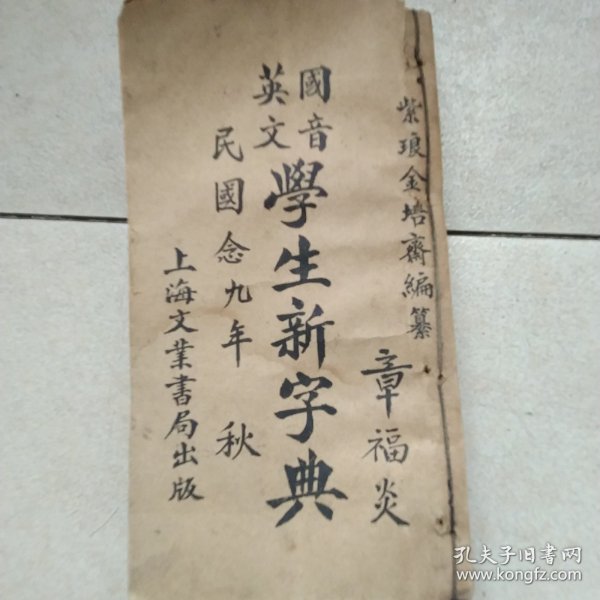 紫琅金培齋編纂
章福炎
國音
英文
學生新字典
民國念九年 秋
上海文業書局出版
孔夫子旧书网
www.kongfz.com